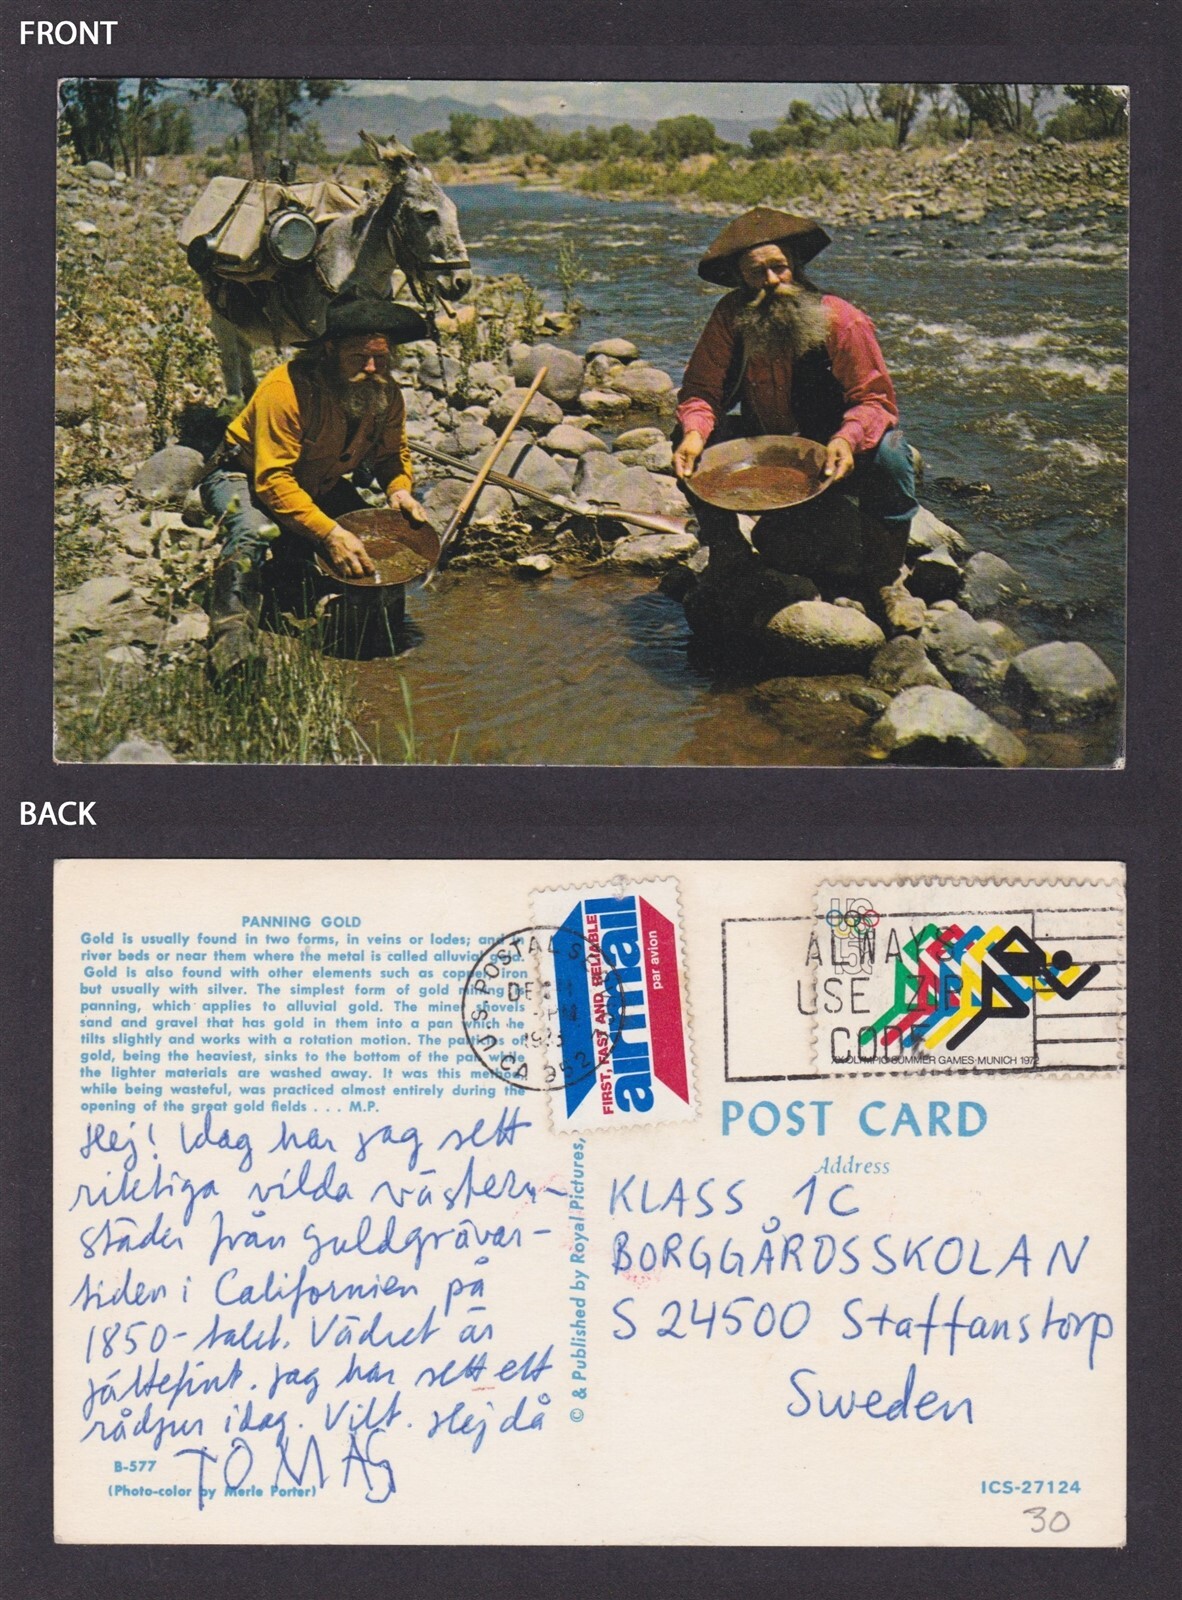 FRONT
BACK
PANNING GOLD
Gold is usually found in two forms, in veins or lodes; and in
river beds or near them where the metal is called alluvial gold.
Gold is also found with other elements such as copper, iron
but usually with silver. The simplest form of gold mining is
panning, which applies to alluvial gold. The miner shovels
sand and gravel that has gold in them into a pan which he
tilts slightly and works with a rotation motion. The particles of
gold, being the heaviest, sinks to the bottom of the pan while
the lighter materials are washed away. It was this method,
while being wasteful, was practiced almost entirely during the
opening of the great gold fields . . . M.P.
Hej! Idag har jag sett
riktiga vilda västern-
städer från guldgrävar-
tiden i Californien på
1850-talet. Vädret är
jättefint. Jag har sett ett
rådjur idag. Vilt. Hej då
TOMAS
B-577
(Photo-color by Merle Porter)
© & Published by Royal Pictures,
FIRST, FAST AND RELIABLE
airmail
par avion
U.S. POSTAL S
DE
PM
CA 952
ALWAYS
USE ZIP
CODE
US 15¢
XX OLYMPIC SUMMER GAMES·MUNICH 1972
POST CARD
Address
KLASS 1C
BORGGÅRDSSKOLAN
S 24500 Staffanstorp
Sweden
ICS-27124
30